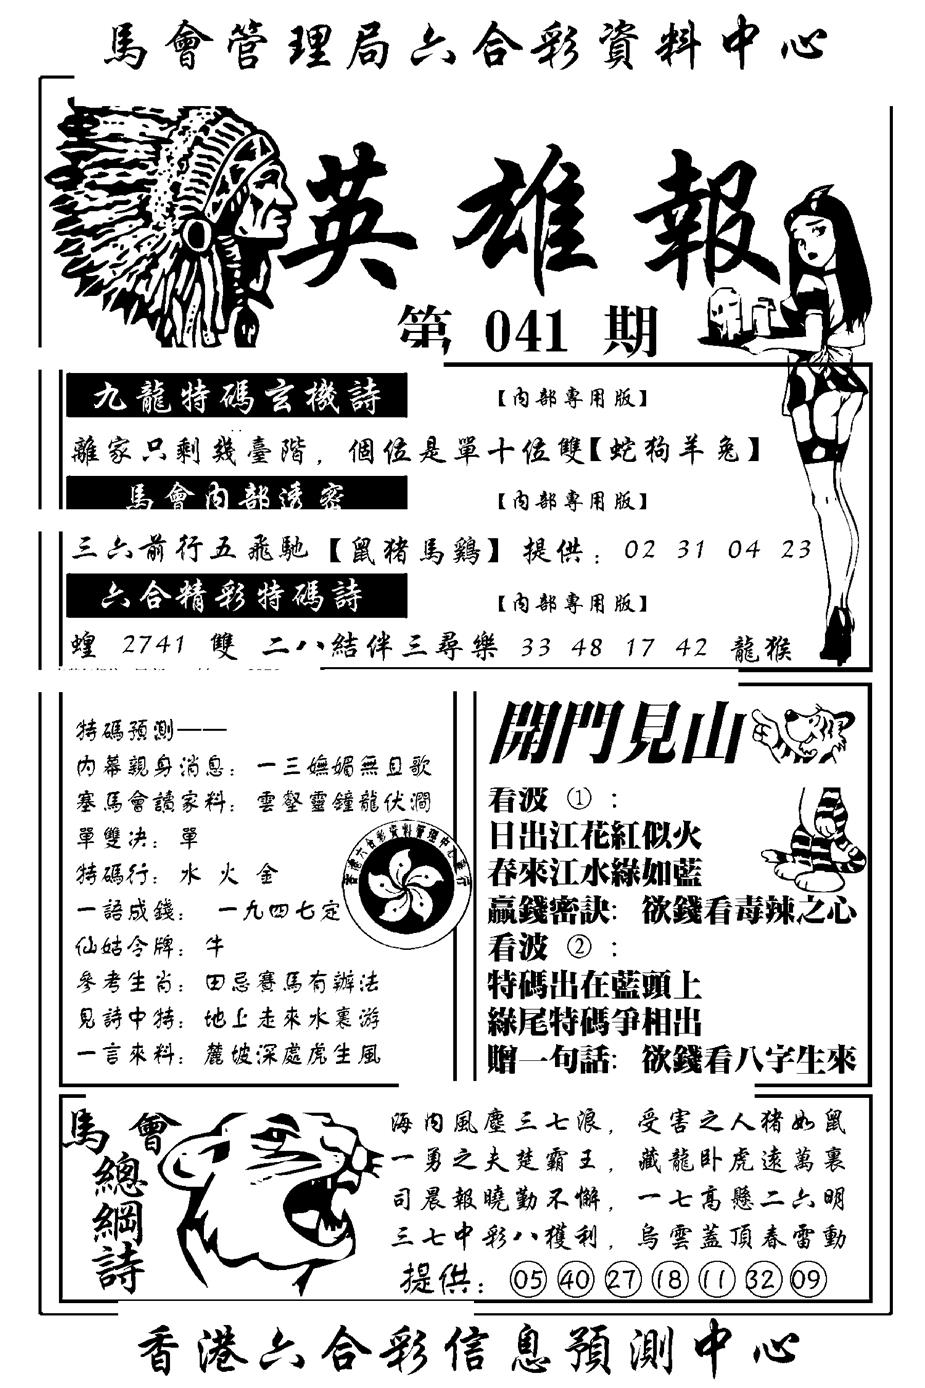 馬會管理局六合彩資料中心
英雄報
第 041 期
九龍特碼玄機詩
【內部專用版】
離家只剩幾臺階，個位是單十位雙【蛇狗羊兔】
馬會內部透密
【內部專用版】
三六前行五飛馳【鼠猪馬鷄】提供：02 31 04 23
六合精彩特碼詩
【內部專用版】
蝗 2741 雙 二八結伴三尋樂 33 48 17 42 龍猴
特碼預測——
內幕親身消息：一三嫵媚無且歌
塞馬會讀家料：雲壑靈鐘龍伏澗
單雙决：單
特碼行：水 火 金
一語成錢： 一九四七定
仙姑令牌：牛
參考生肖：田忌賽馬有辦法
見詩中特：地上走來水裏游
一言來料：麓坡深處虎生風
香港六合彩資料管理中心發行
開門見山
看波 ①：
日出江花紅似火
春來江水綠如藍
贏錢密訣：欲錢看毒辣之心
看波 ②：
特碼出在藍頭上
綠尾特碼爭相出
贈一句話：欲錢看八字生來
馬會
總綱詩
海內風塵三七浪，受害之人猪如鼠
一勇之夫楚霸王，藏龍卧虎遠萬裏
司晨報曉勤不懈，一七高懸二六明
三七中彩八獲利，烏雲蓋頂春雷動
提供：05 40 27 18 11 32 09
香港六合彩信息預測中心